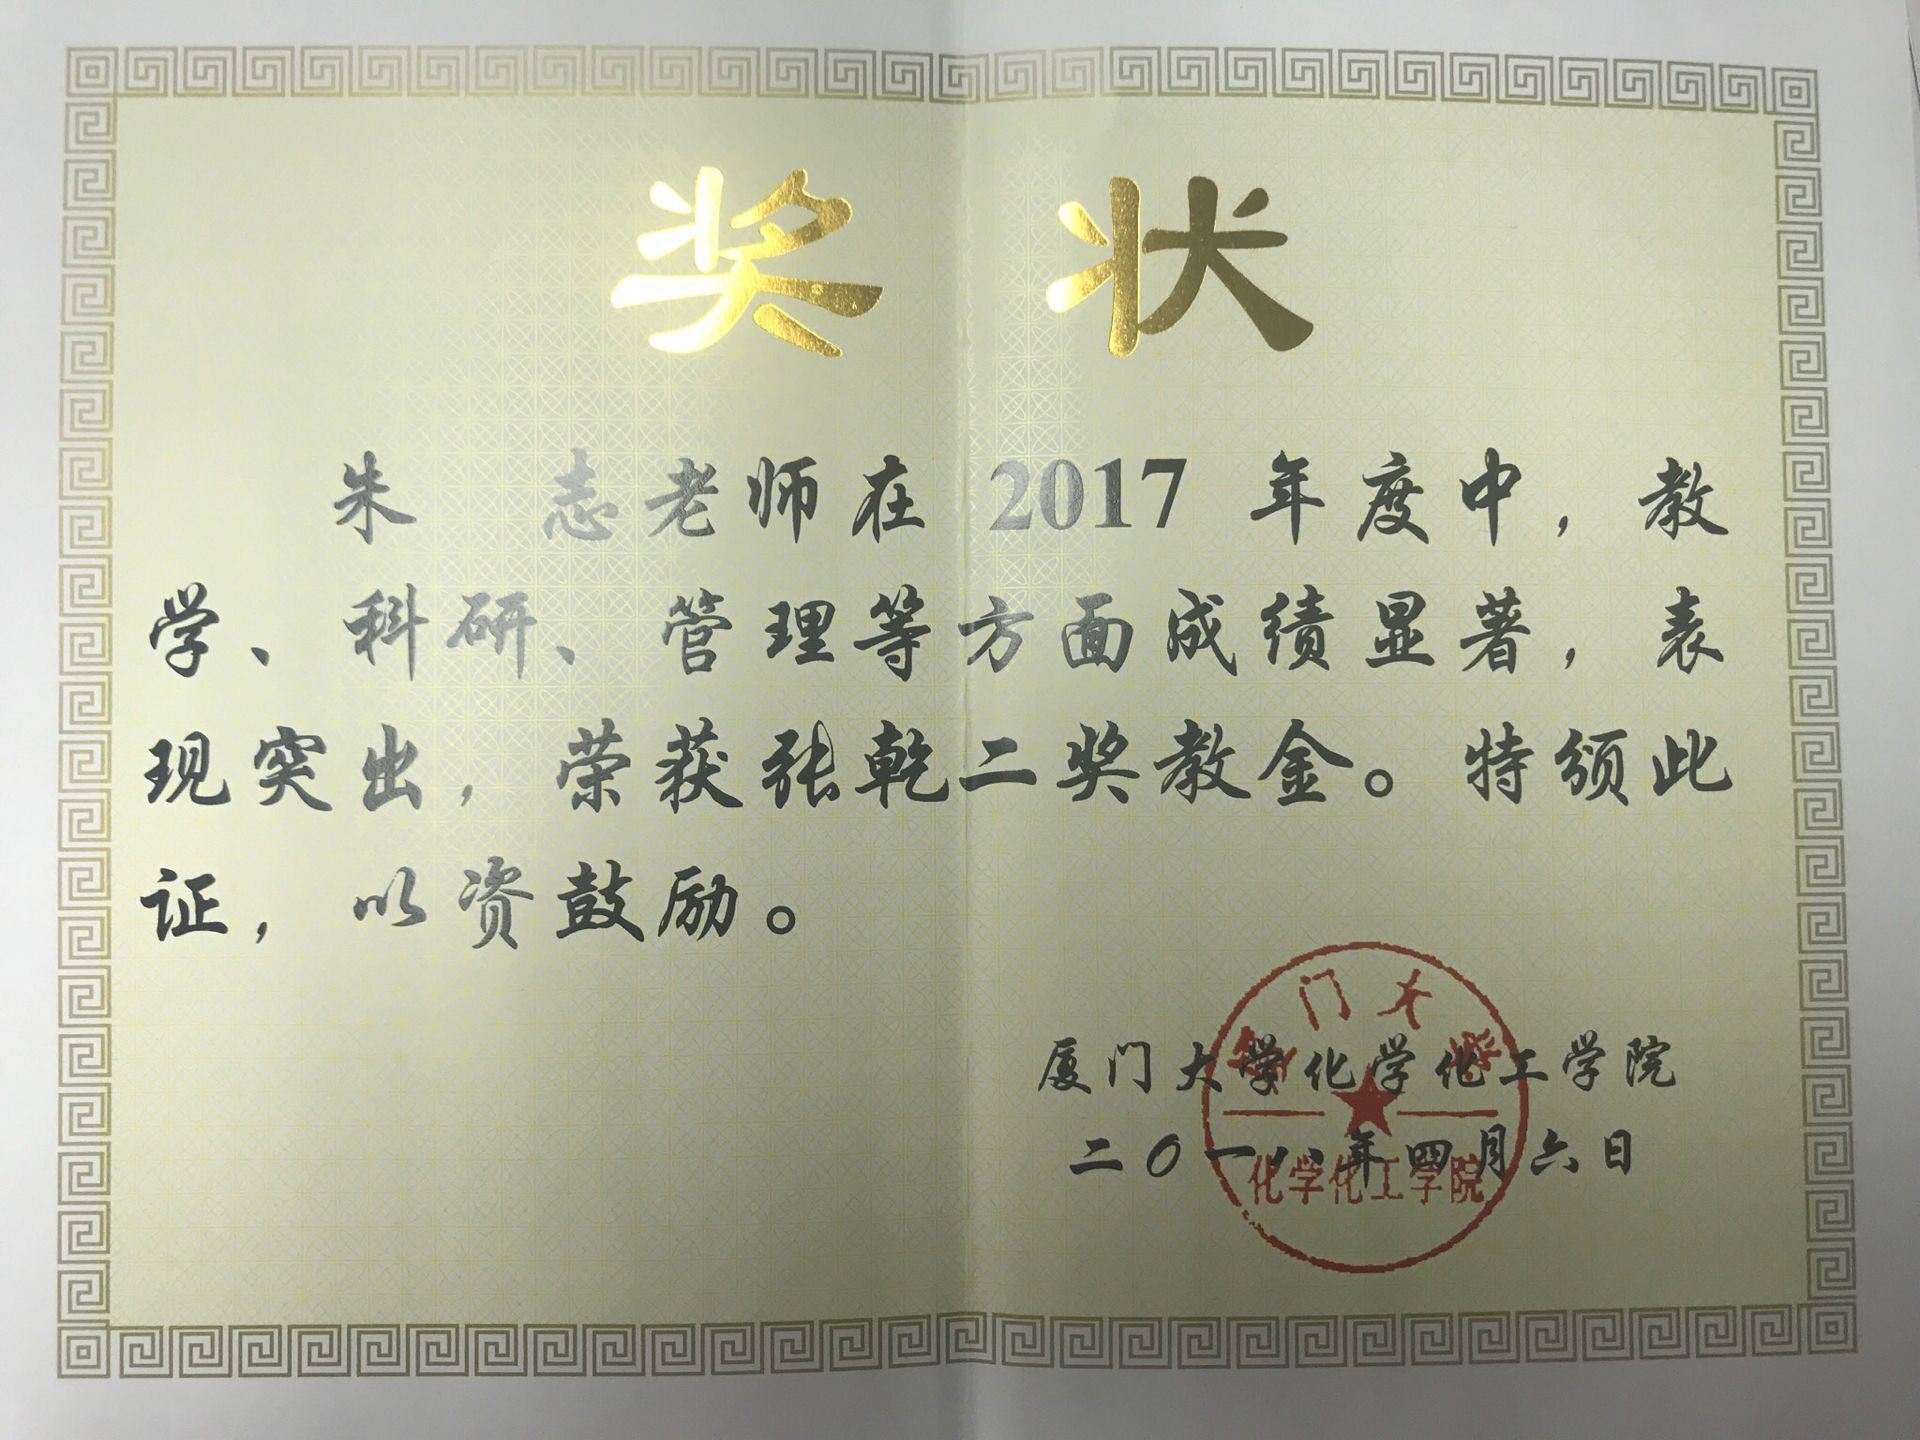 奖 状
朱 志老师在 2017 年度中，教
学、科研、管理等方面成绩显著，表
现突出，荣获张乾二奖教金。特颁此
证，以资鼓励。
厦门大学化学化工学院
二〇一八年四月六日
厦门大学
化学化工学院